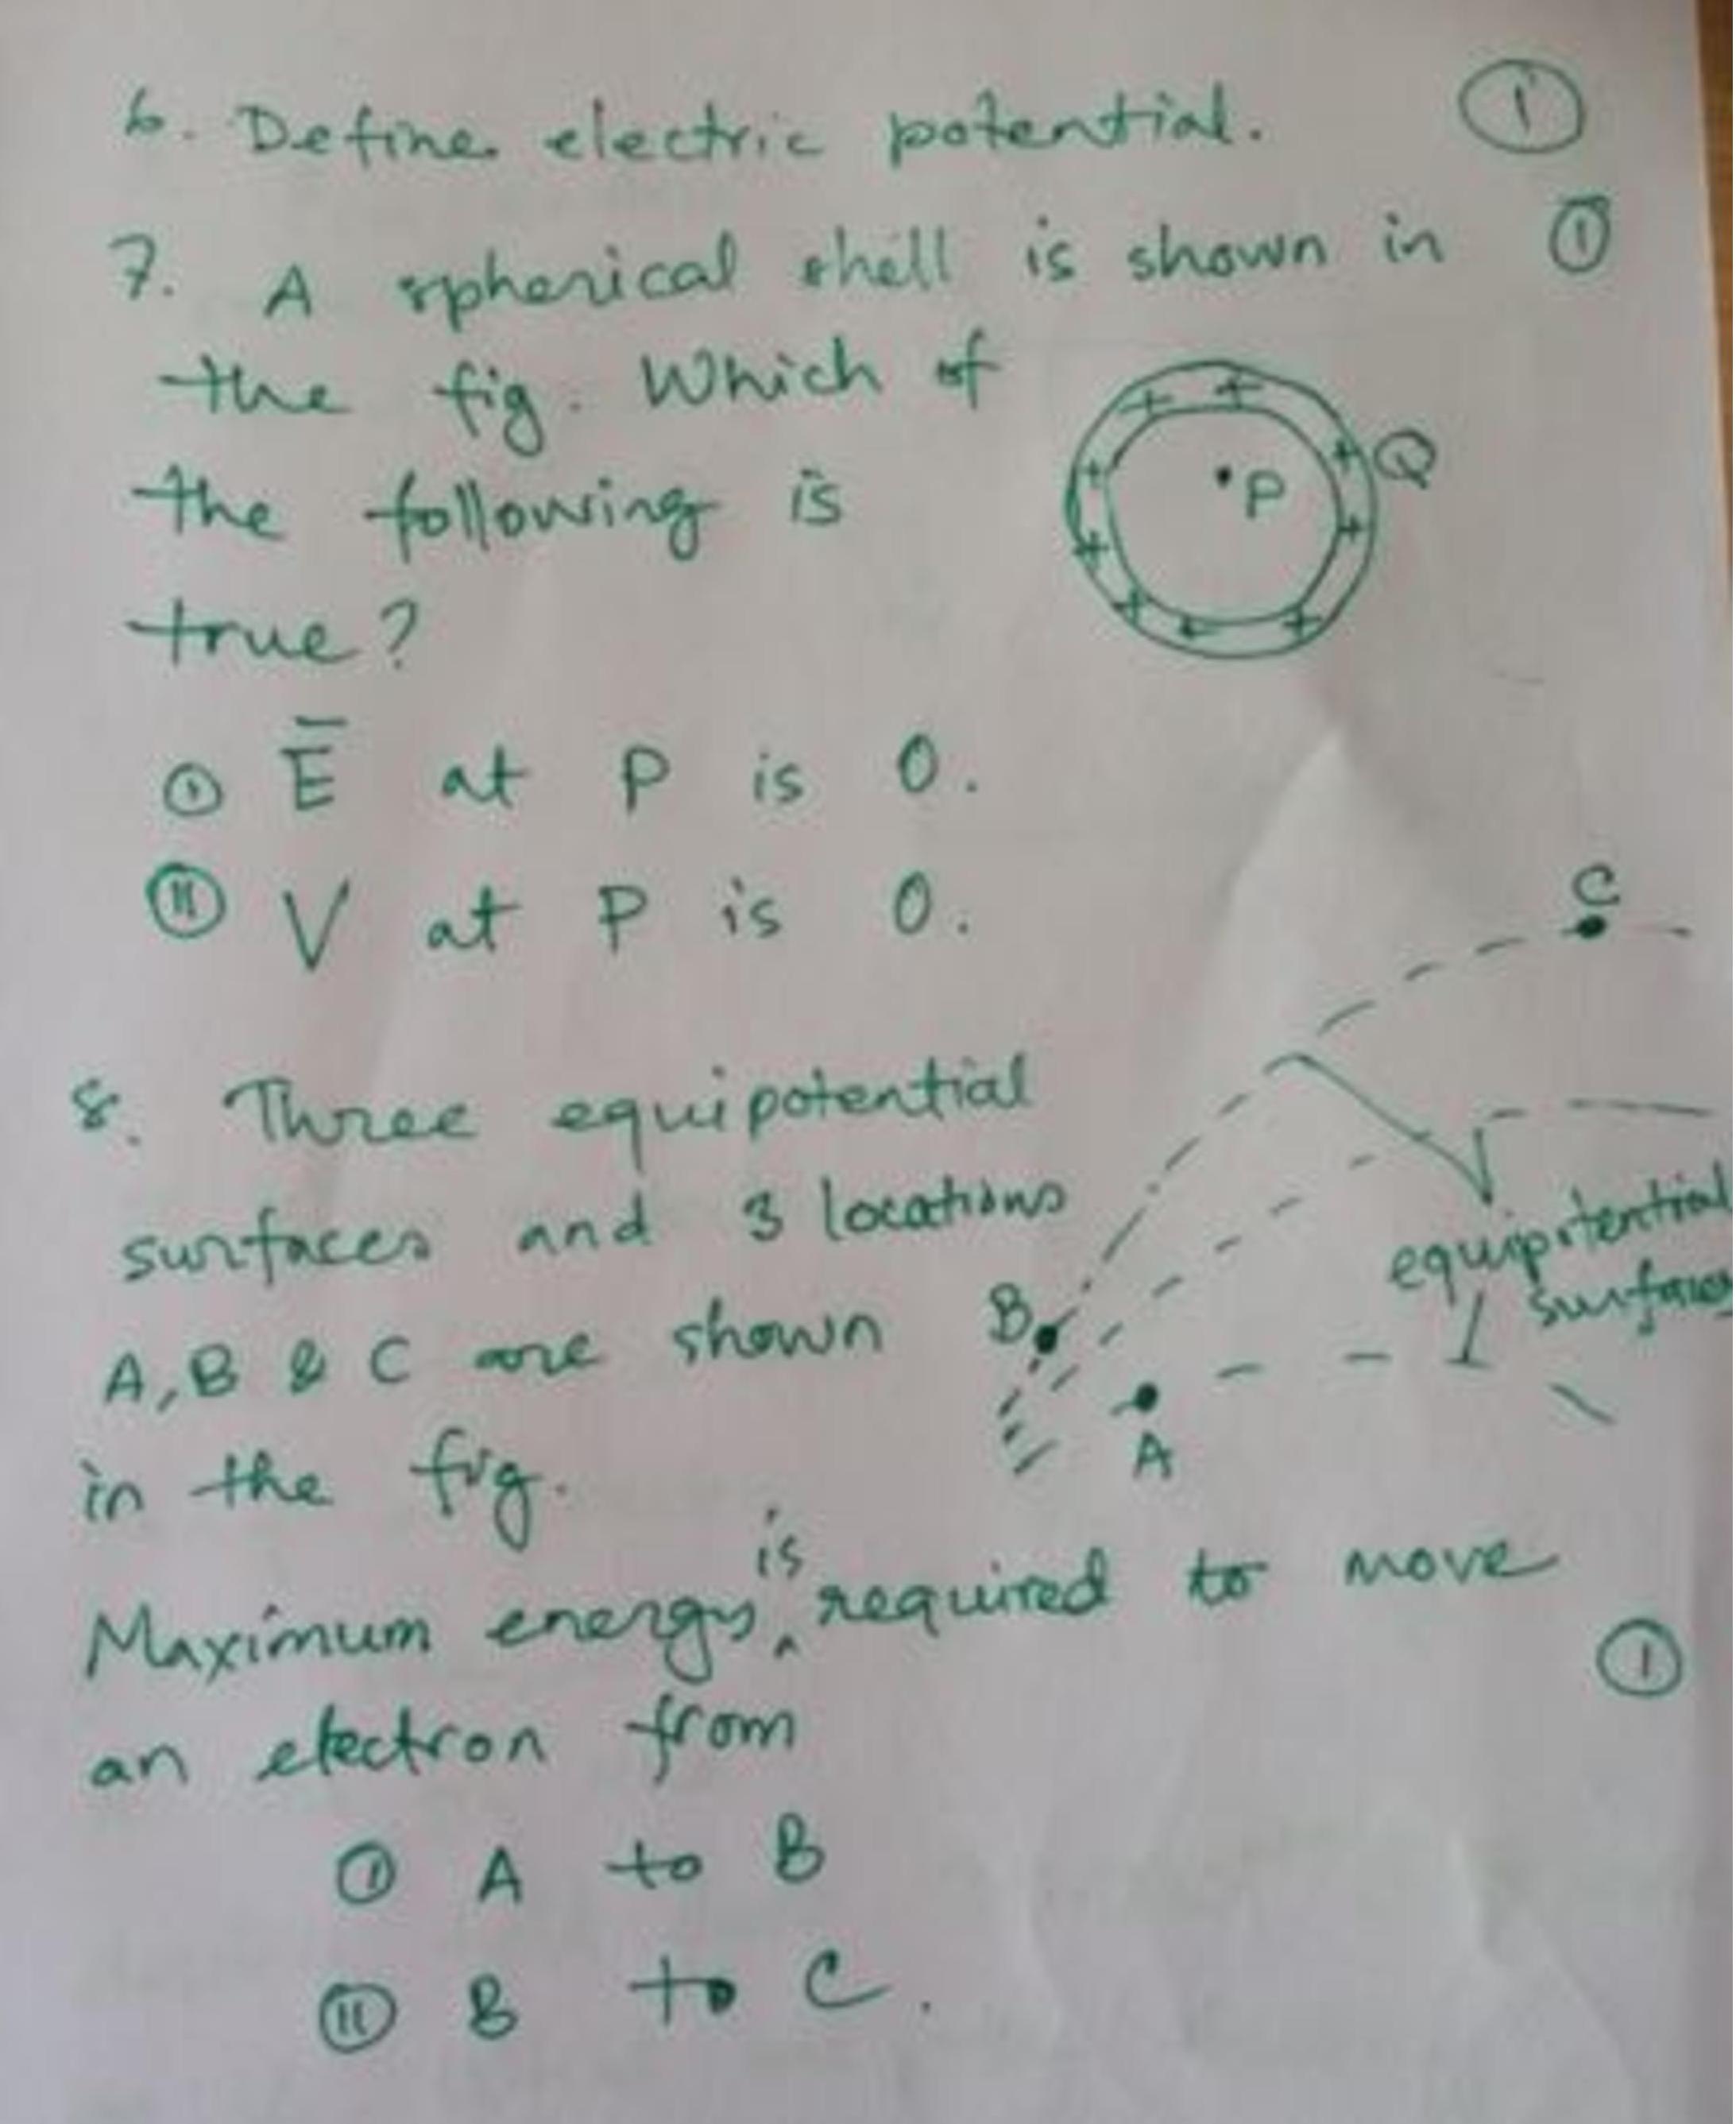 6. Define electric potential. ①
7. A spherical shell is shown in ①
the fig. Which of
the following is
true?
+ + + + + + + + + Q
P
Ⓘ E̅ at P is 0.
Ⓘⓘ V at P is 0.
C
8. Three equipotential
surfaces and 3 locations
equipotential
surfaces
A, B & C are shown
B
A
in the fig.
Maximum energy is required to move
an electron from ①
Ⓘ A to B
Ⓘⓘ B to C.